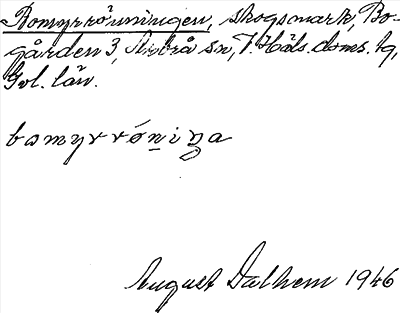 Bomyrröningen, skogsmark, Bo-
gården 3, Arbrå sn, V. Häls. doms. tg,
Gvl. län.
bomyrröniŋa
August Dalhem 1946